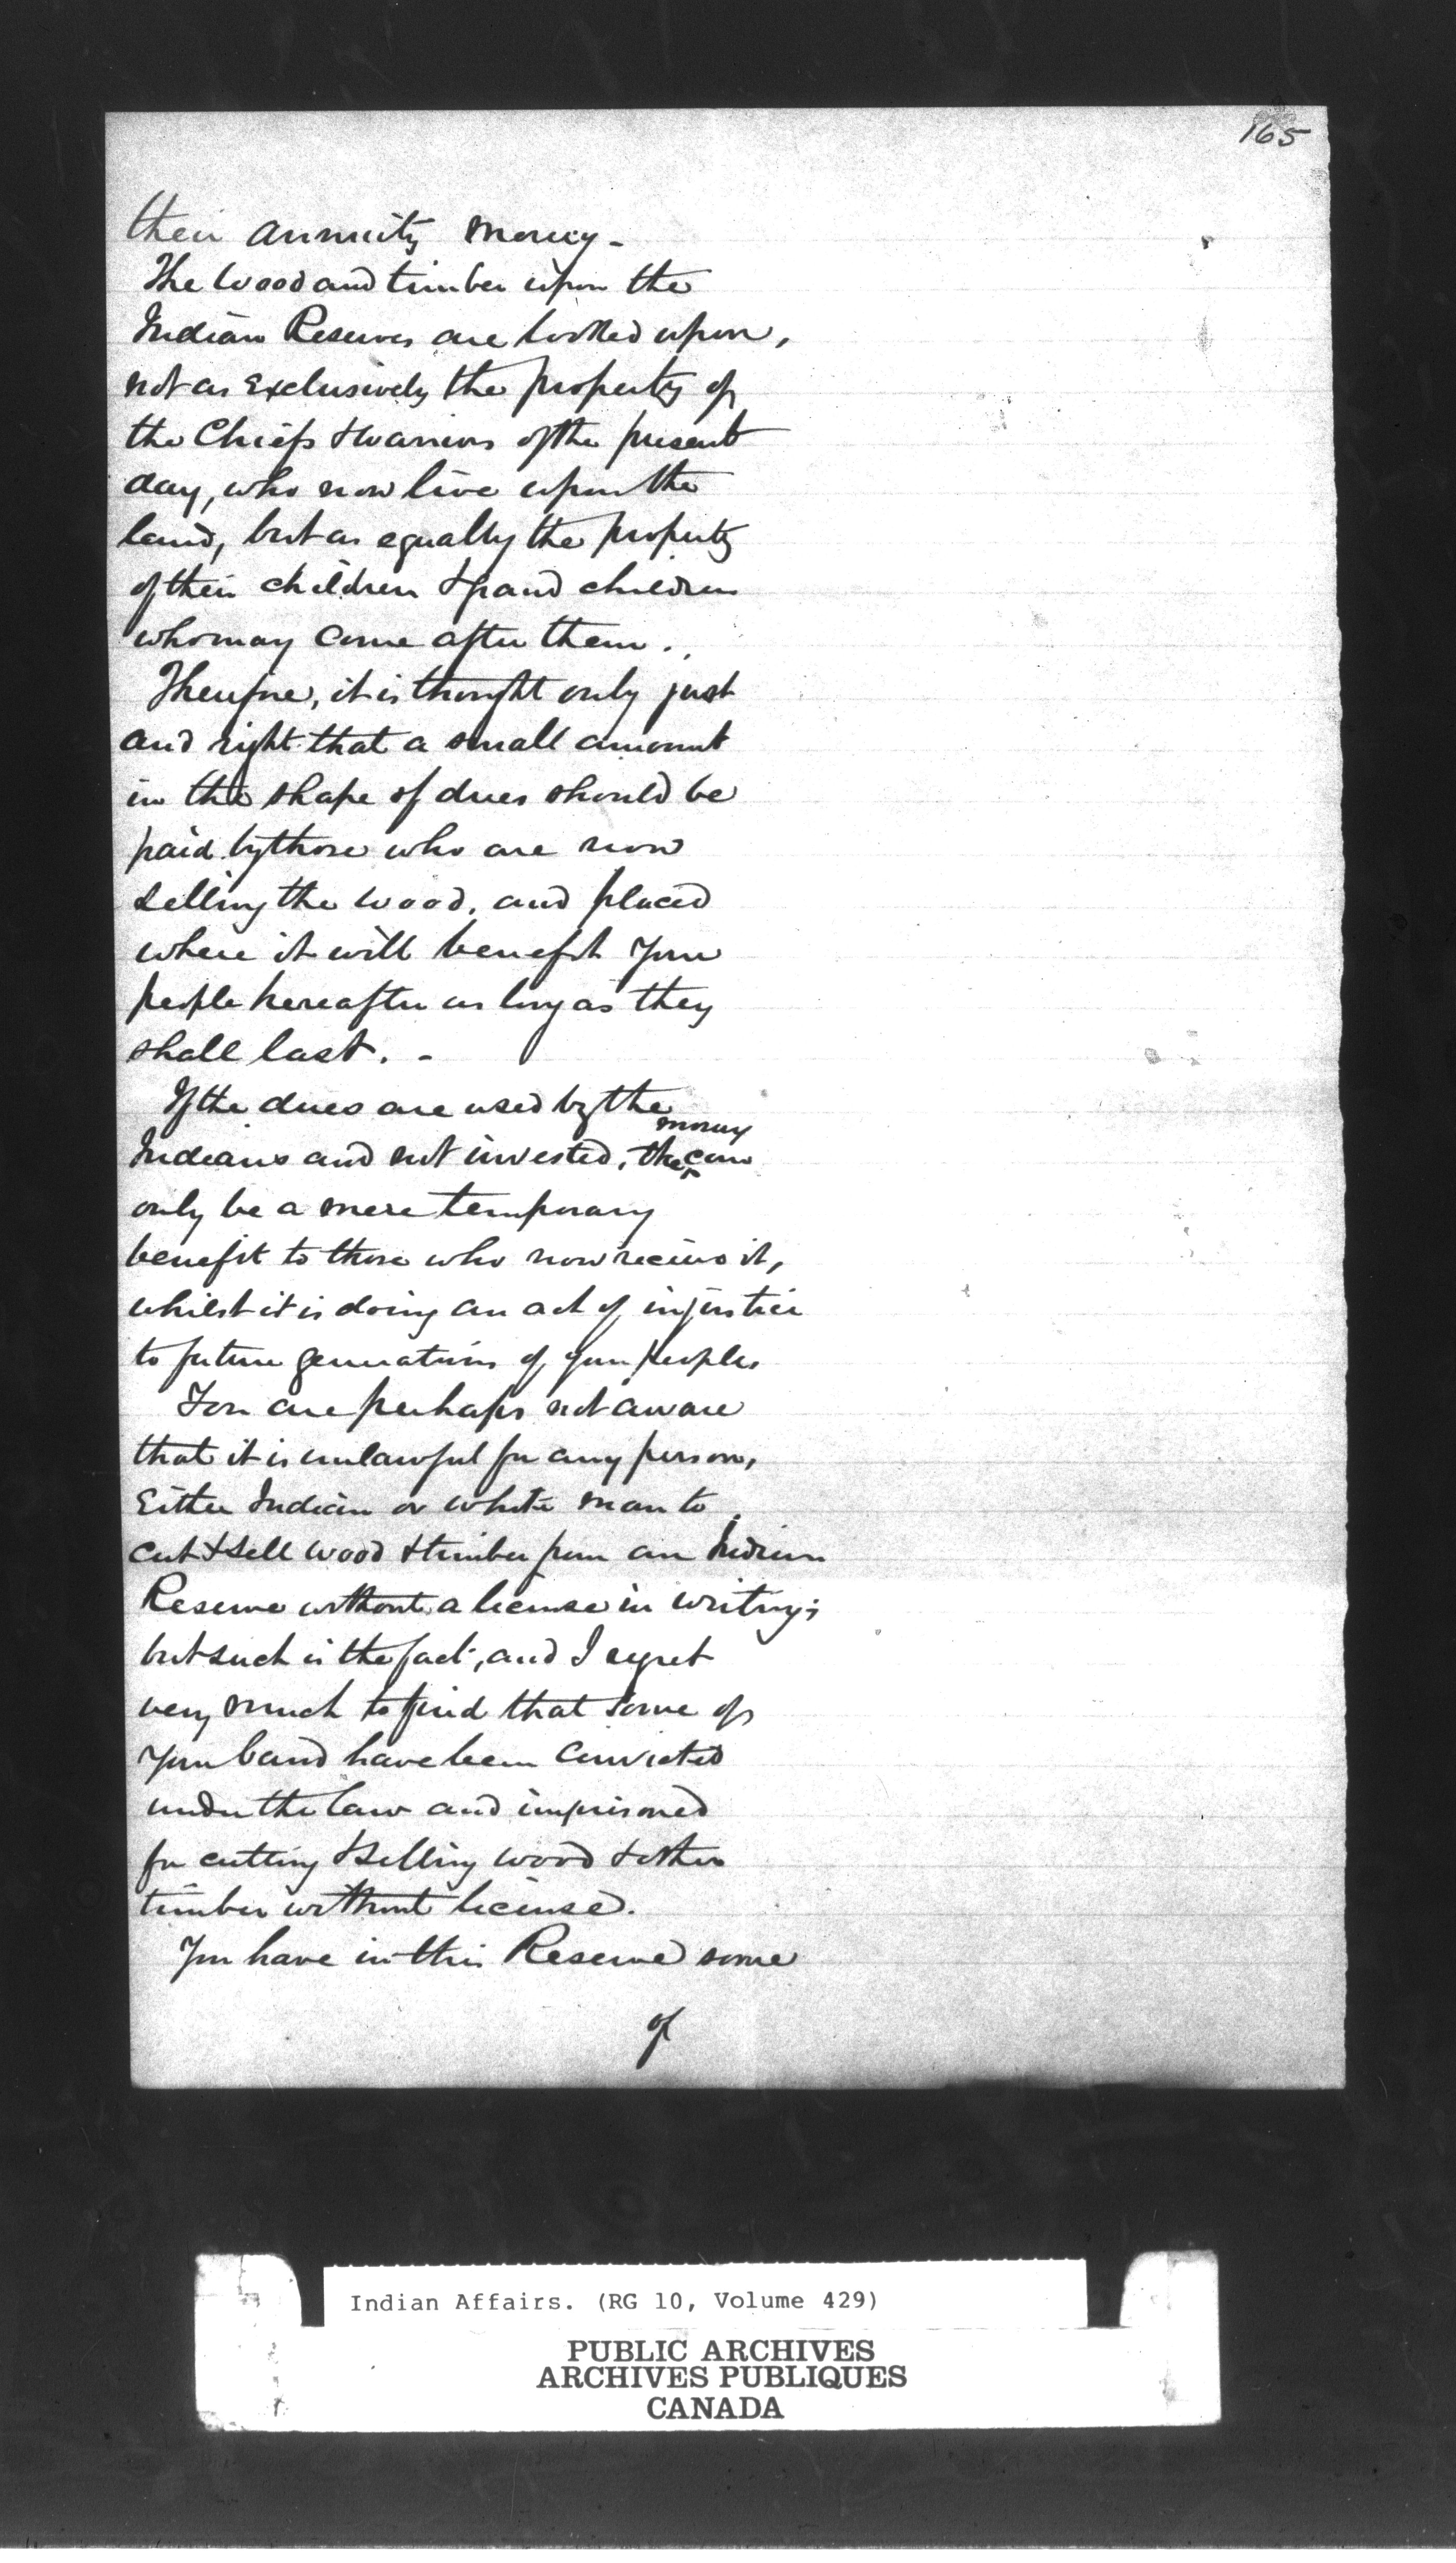 165
their annuity money -
The wood and timber upon the
Indian Reserves are looked upon,
not as exclusively the property of
the Chiefs & warriors of the present
day, who now live upon the
land, but as equally the property
of their children & grand children
who may come after them.
Therefore, it is thought only just
and right that a small amount
in the shape of dues should be
paid by those who are now
selling the wood, and placed
where it will benefit your
people hereafter as long as they
shall last. -
If the dues are used by the
money
Indians and not invested, the can
only be a mere temporary
benefit to those who now receive it,
whilst it is doing an act of injustice
to future generations of your people.
You are perhaps not aware
that it is unlawful for any person,
Either Indian or white man to
cut & sell wood & timber from an Indian
Reserve without a license in writing;
but such is the fact, and I regret
very much to find that some of
your band have been convicted
under the law and imprisoned
for cutting & selling wood & other
timber without license.
You have in this Reserve some
of
Indian Affairs. (RG 10, Volume 429)
PUBLIC ARCHIVES
ARCHIVES PUBLIQUES
CANADA